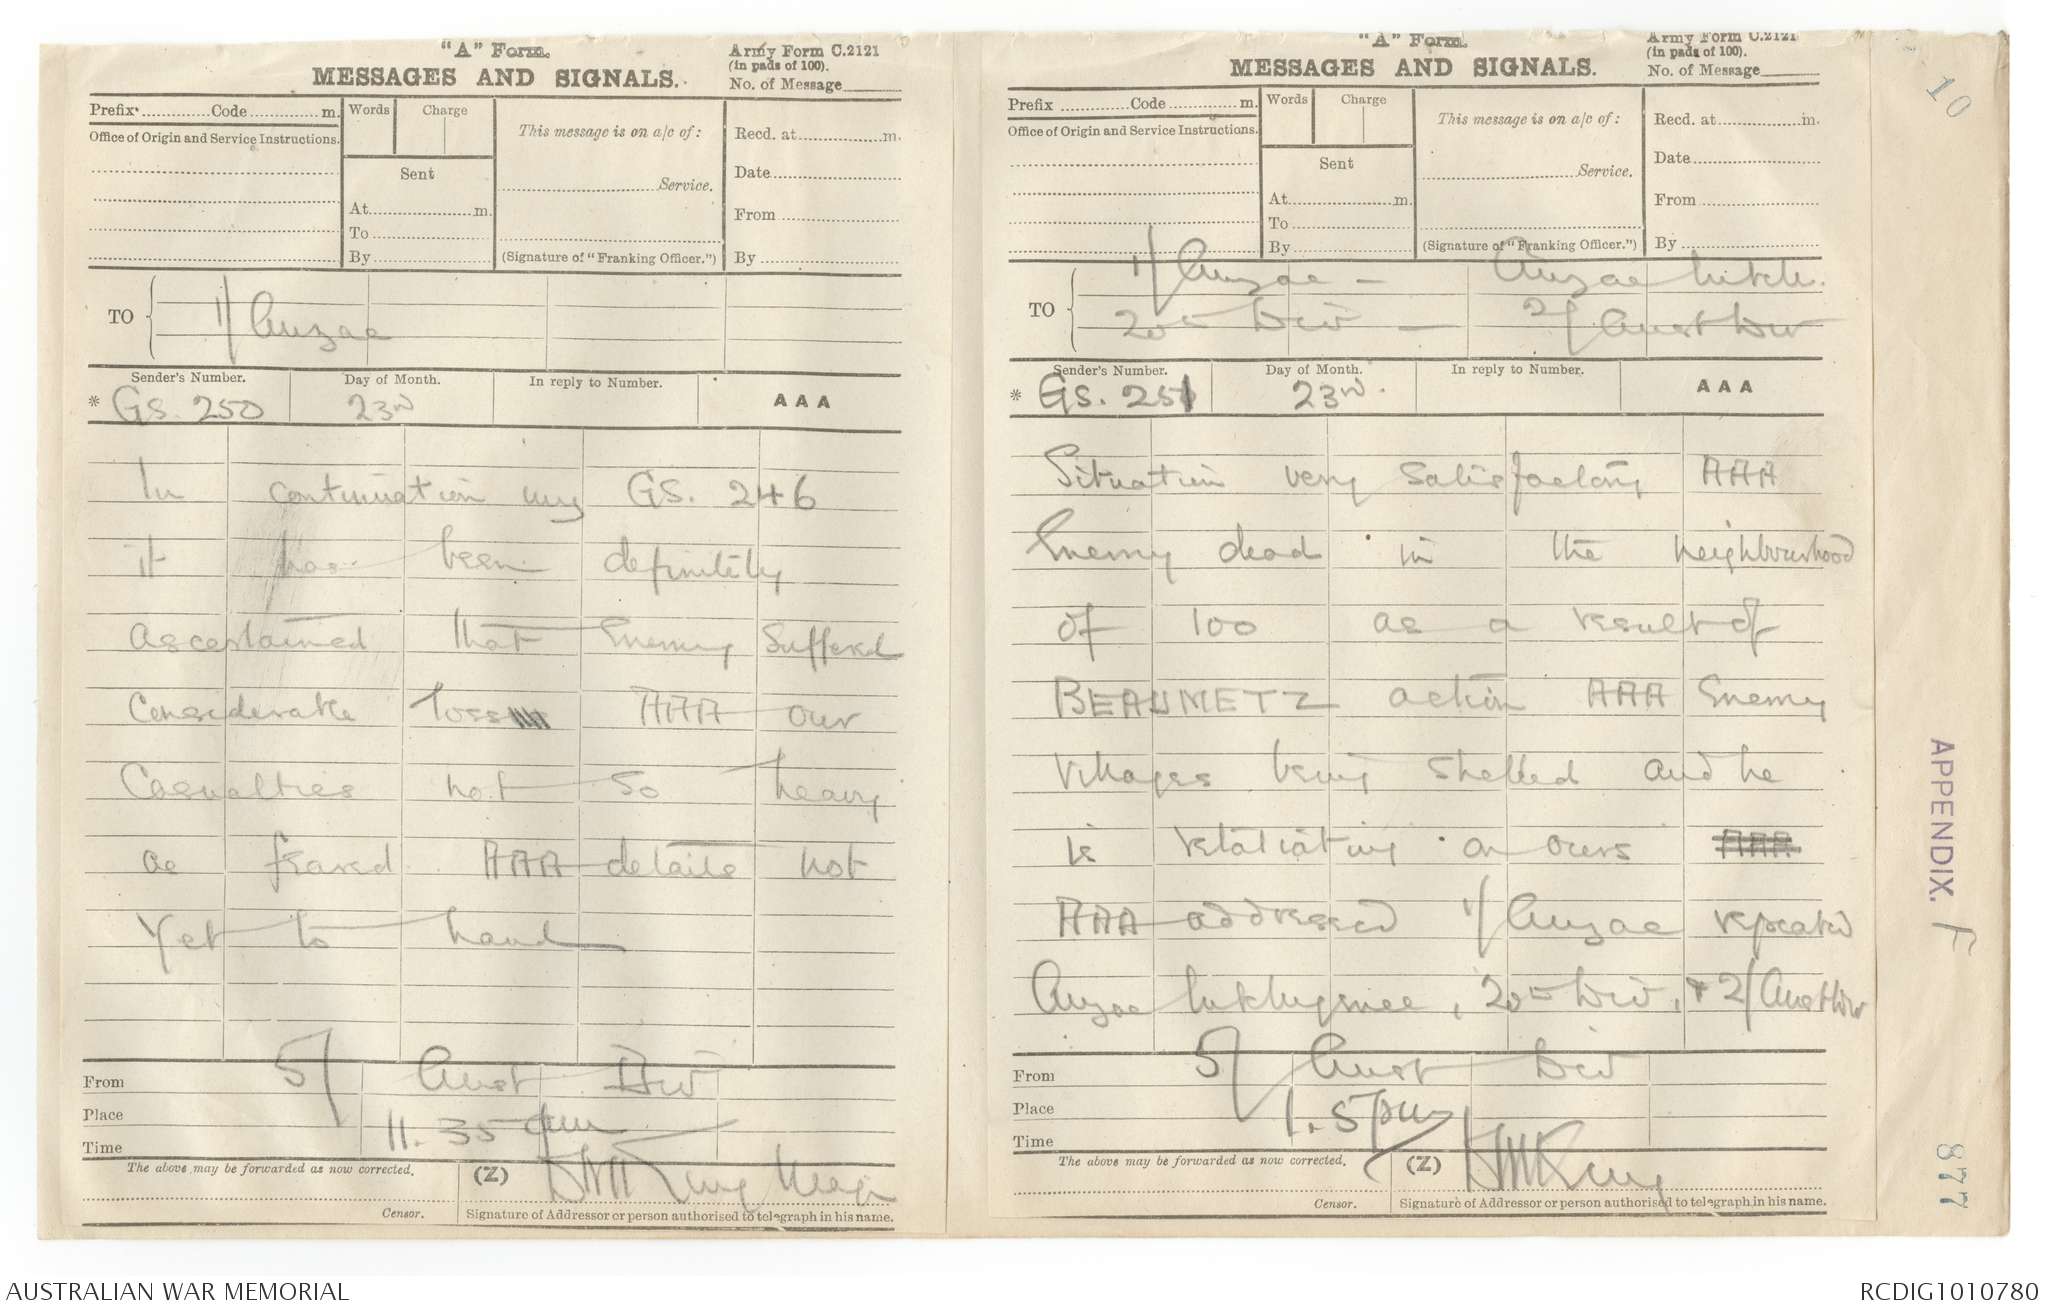 "A" Form.
Army Form C.2121
(in pads of 100).
MESSAGES AND SIGNALS.
No. of Message
Prefix Code m.
Words Charge
This message is on a/c of:
Recd. at m.
Office of Origin and Service Instructions.
Sent
Service.
Date
At m.
From
To
By
(Signature of "Franking Officer.")
By
TO
1/Anzac
Sender's Number.
Day of Month.
In reply to Number.
AAA
* GS. 250
23rd
In continuation my GS. 246
it has been definitely
ascertained that Enemy Suffered
Considerable loss AAA our
Casualties not so heavy
as feared AAA details not
yet to hand
From
5/ Aust Div
Place
Time
11.35 am
The above may be forwarded as now corrected.
(Z)
Major
Censor.
Signature of Addressor or person authorised to telegraph in his name.
"A" Form.
Army Form C.2121
(in pads of 100).
MESSAGES AND SIGNALS.
No. of Message
Prefix Code m.
Words Charge
This message is on a/c of:
Recd. at m.
Office of Origin and Service Instructions.
Sent
Service.
Date
At m.
From
To
By
(Signature of "Franking Officer.")
By
TO
1/Anzac - Anzac
20th Div - 2/Aust Div
Sender's Number.
Day of Month.
In reply to Number.
AAA
* GS. 251
23rd.
Situation very satisfactory AAA
Enemy dead in the neighbourhood
of 100 as a result of
BEAUMETZ action AAA Enemy
villages being shelled and he
is retaliating on ours AAA
AAA addressed 1/Anzac repeated
Anzac Intelligence, 20th Div, + 2/Aust Div
From
5/ Aust Div
Place
Time
1.5 pm
The above may be forwarded as now corrected.
(Z)
Censor.
Signature of Addressor or person authorised to telegraph in his name.
10
APPENDIX. F
877
AUSTRALIAN WAR MEMORIAL
RCDIG1010780